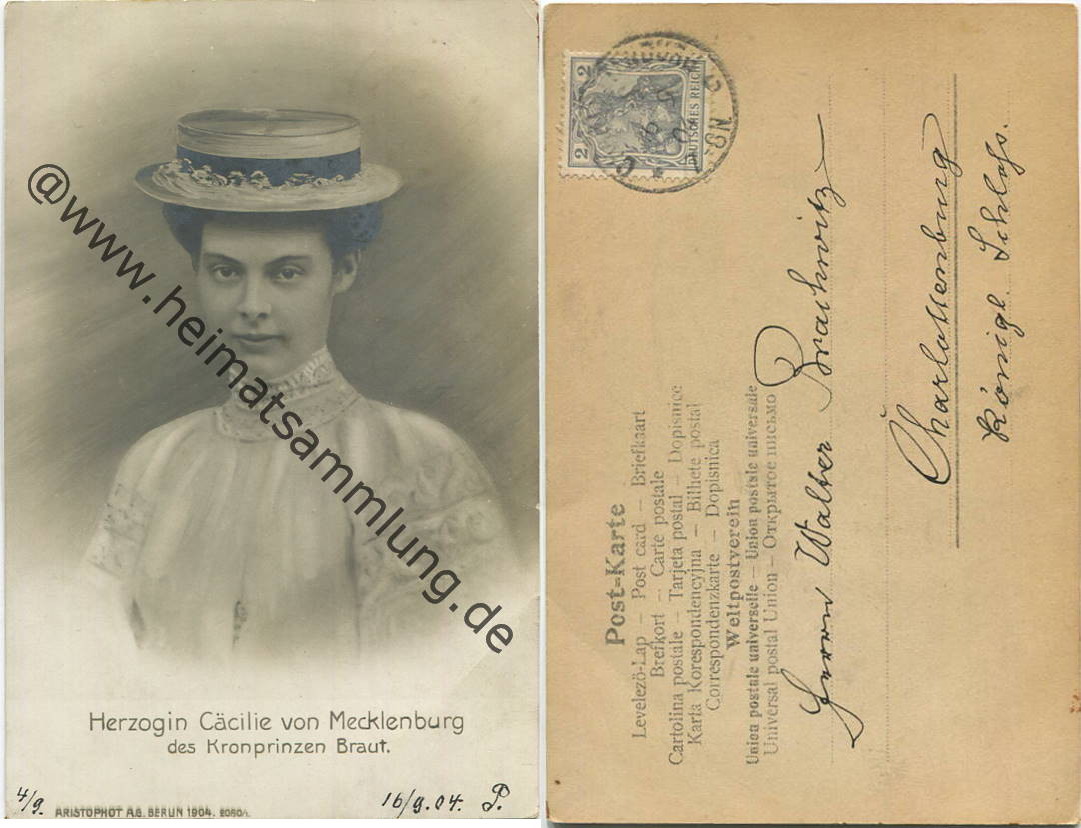 @www.heimatsammlung.de
Herzogin Cäcilie von Mecklenburg
des Kronprinzen Braut.
4/9.
ARISTOPHOT A.G. BERLIN 1904.
16/9.04. P.
2 2
DEUTSCHES REICH
Post=Karte
Levelező-Lap — Post card — Briefkaart
Brefkort — Carte postale
Cartolina postale — Tarjeta postal — Dopisnice
Karta Korespondencyjna — Bilhete postal
Correspondenzkarte — Dopisnica
Weltpostverein
Union postale universelle — Union postale universale
Universal postal Union — Открытое письмо
Herrn Walter Brachwitz
Charlottenburg
Königl. Schloss.